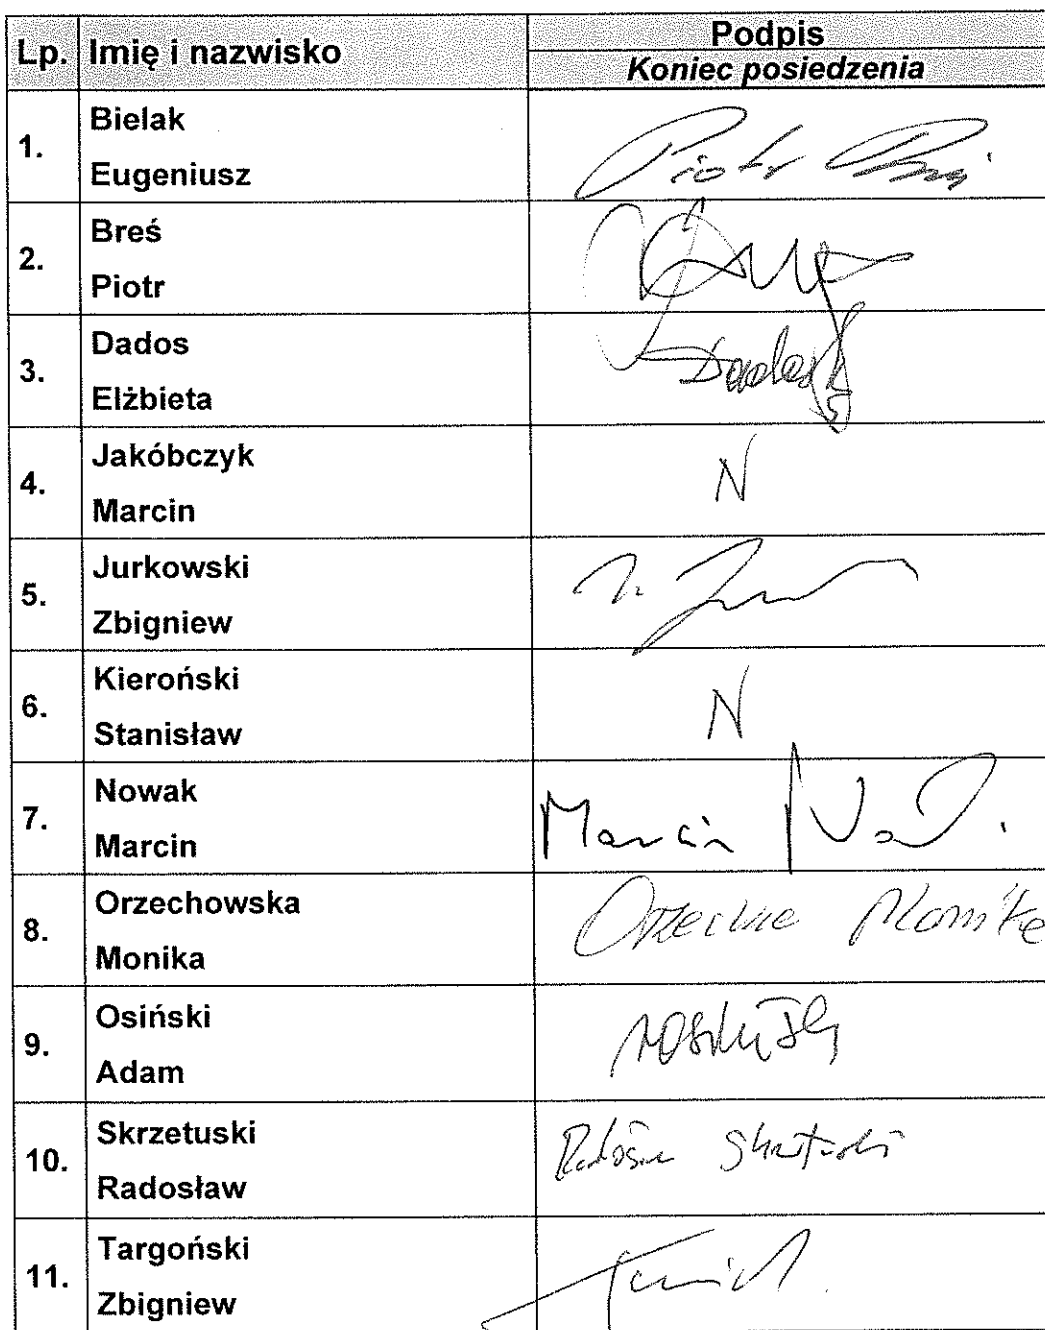 Lp. Imię i nazwisko Podpis
Koniec posiedzenia
1. Bielak
Eugeniusz
Piotr
2. Breś
Piotr
3. Dados
Elżbieta
4. Jakóbczyk
Marcin
N
5. Jurkowski
Zbigniew
6. Kieroński
Stanisław
N
7. Nowak
Marcin
Marcin
8. Orzechowska
Monika
9. Osiński
Adam
10. Skrzetuski
Radosław
11. Targoński
Zbigniew